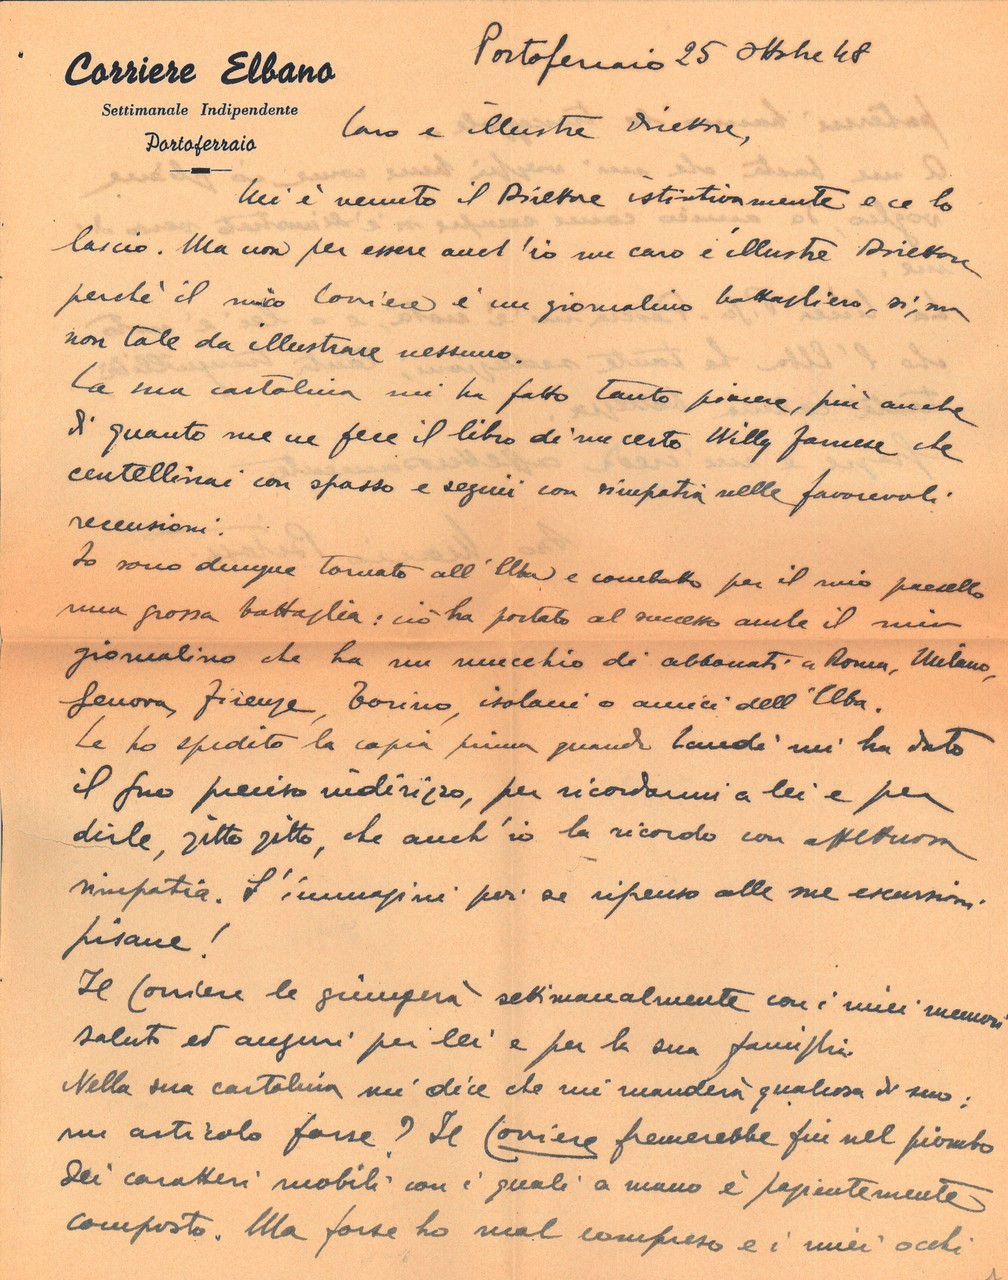 Corriere Elbano
Settimanale Indipendente
Portoferraio
Portoferraio 25 ottobre 48
Caro e illustre Direttore,
Mi è venuto il Direttore istintivamente e ce lo
lascio. Ma non per essere anch'io un caro e illustre Direttore
perchè il mio Corriere è un giornalino battagliero, sì, ma
non tale da illustrare nessuno.
La sua cartolina mi ha fatto tanto piacere, più anche
di quanto me ne fece il libro di un certo Willy Farnese che
centellinai con spasso e seguii con simpatia nelle favorevoli
recensioni.
Io sono dunque tornato all'Elba e combatto per il mio paesello
una grossa battaglia: ciò ha portato al successo anche il mio
giornalino che ha un mucchio di abbonati a Roma, Milano,
Genova, Firenze, Torino, isolani o amici dell'Elba.
Le ho spedito la copia prima quando Landi mi ha dato
il suo preciso indirizzo, per ricordarmi a lei e per
dirle, zitto zitto, che anch'io la ricordo con affettuosa
simpatia. S'immagini poi se ripenso alle sue escursioni
pisane!
Il Corriere le giungerà settimanalmente con i miei memori
saluti ed auguri per lei e per la sua famiglia.
Nella sua cartolina mi dice che mi manderà qualcosa di suo:
un articolo forse? Il Corriere fremerebbe fin nel piombo
dei caratteri mobili con i quali a mano è pazientemente
composto. Ma forse ho mal compreso e i miei occhi